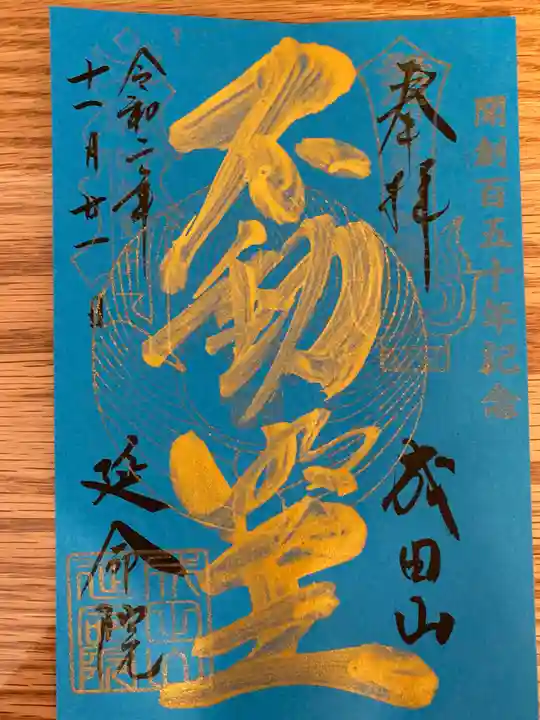 開創百五十年記念
奉拝
成田山
不動堂
令和二年
十一月廿一日
延命院